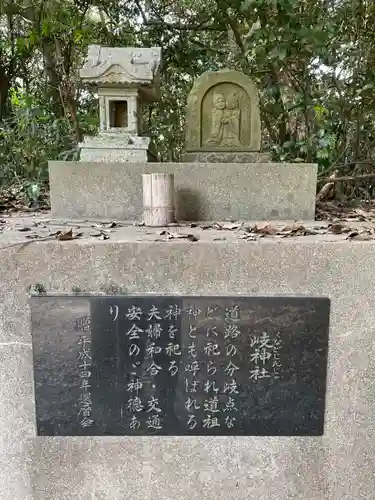 くなどじんじゃ
岐神社
道路の分岐点な
どに祀られ道祖
神とも呼ばれる
神を祀る
夫婦和合・交通
安全のご神徳あ
り
贈 平成十四年還暦会